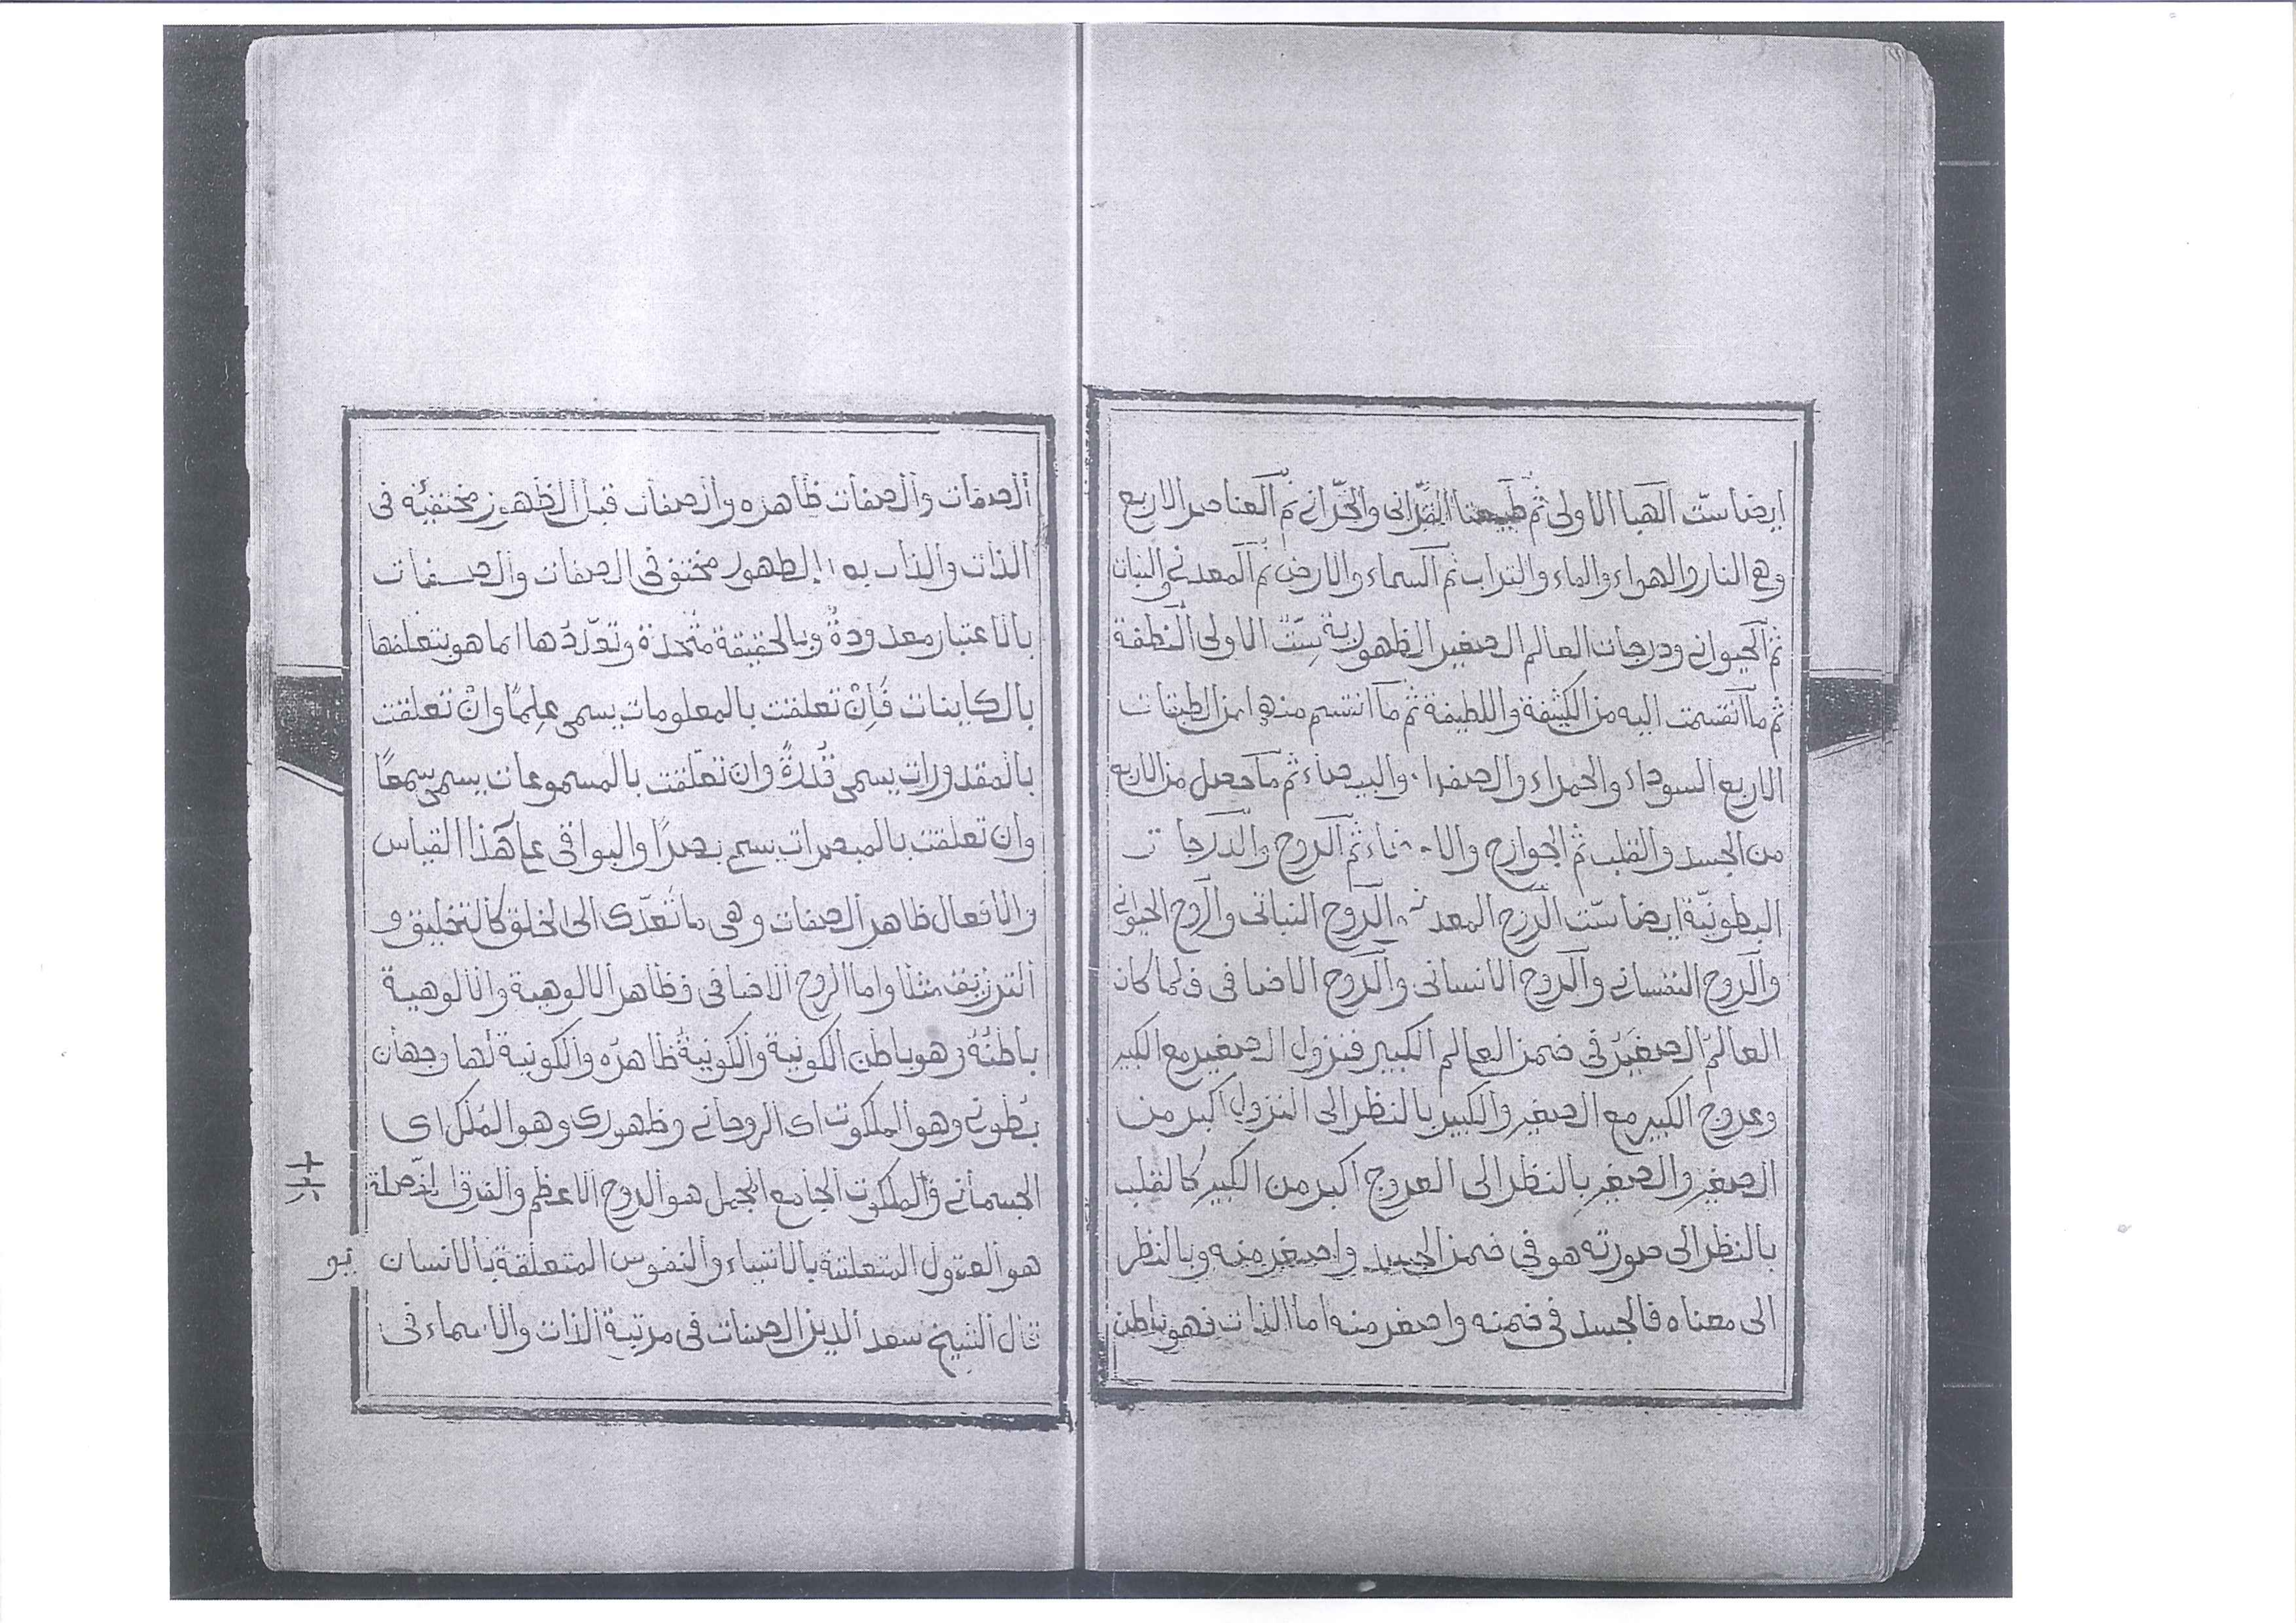 ايضا ستّ الهبا الاولى ثم طبيعتا القرانى والخزانى ثم العناصر الاربع
وهى النار والهواء والماء والتراب ثم السماء والارض ثم المعدنى والنبات
ثم الحيوانى ودرجات العالم الصغير الظهورية ستّ الاولى النطفة
ثم ما انقسمت اليه من الكثيفة واللطيفة ثم ما انقسم منها من الطبقات
الاربع السوداء والحمراء والصفراء والبيضاء ثم ما حصل من الاربع
من الجسد والقلب ثم الجوارح ثم الروح والدرجات
البطونيّة ايضا ستّ الروح المعدنى الروح النباتى والروح الحيوانى
والروح النفسانى والروح الانسانى والروح الاضافى فلما كان
العالم الصغير فى ضمن العالم الكبير فنزول الصغير مع الكبير
وعروج الكبير مع الصغير والكبير بالنظر الى النزول اكبر من
الصغير والصغير بالنظر الى العروج اكبر من الكبير كالقلب
بالنظر الى صورته هو فى ضمن الجسد واصغر منه وبالنظر
الى معناه فالجسد فى ضمنه واصغر منه اما الذات فهو باطن
الصفات والصفات ظاهره والصفات قبل الظهور مختفية فى
الذات والذات الظهور مختف فى الصفات والصفات
بالاعتبار معدودةٌ وبالحقيقة متّحدة وتعدّدُها انما هو بتعلقها
بالكاينات فَاِنْ تعلقت بالمعلومات يسمى عِلمًا وانْ تعلقت
بالمقدورات يسمى قُدرةً وان تعلّقت بالمسموعات يسمى سمعًا
وان تعلقت بالمبصرات يسمى بصرًا والبواقى على هذا القياس
والافعال ظاهر الصفات وهى ما تعدّى الى الخلق كالتخليق و
الترزيق مثلا واما الروح الاضافى فظاهر الالوهية والالوهية
باطنُهُ وهو باطن الكونية والكونيةُ ظاهره والكونية لها وجهان
بطونى وهو الملكوت اى الروحانى وظهورى وهو المُلك اى
الجسمانى والملكوت الجامع المجمل هو الروح الاعظم والفرق المفصلة
هو العقول المتعلقة بالانبياء والنفوس المتعلقة بالانسان
قال الشيخ سعد الدين الصفات فى مرتبة الذات والاسماء فى